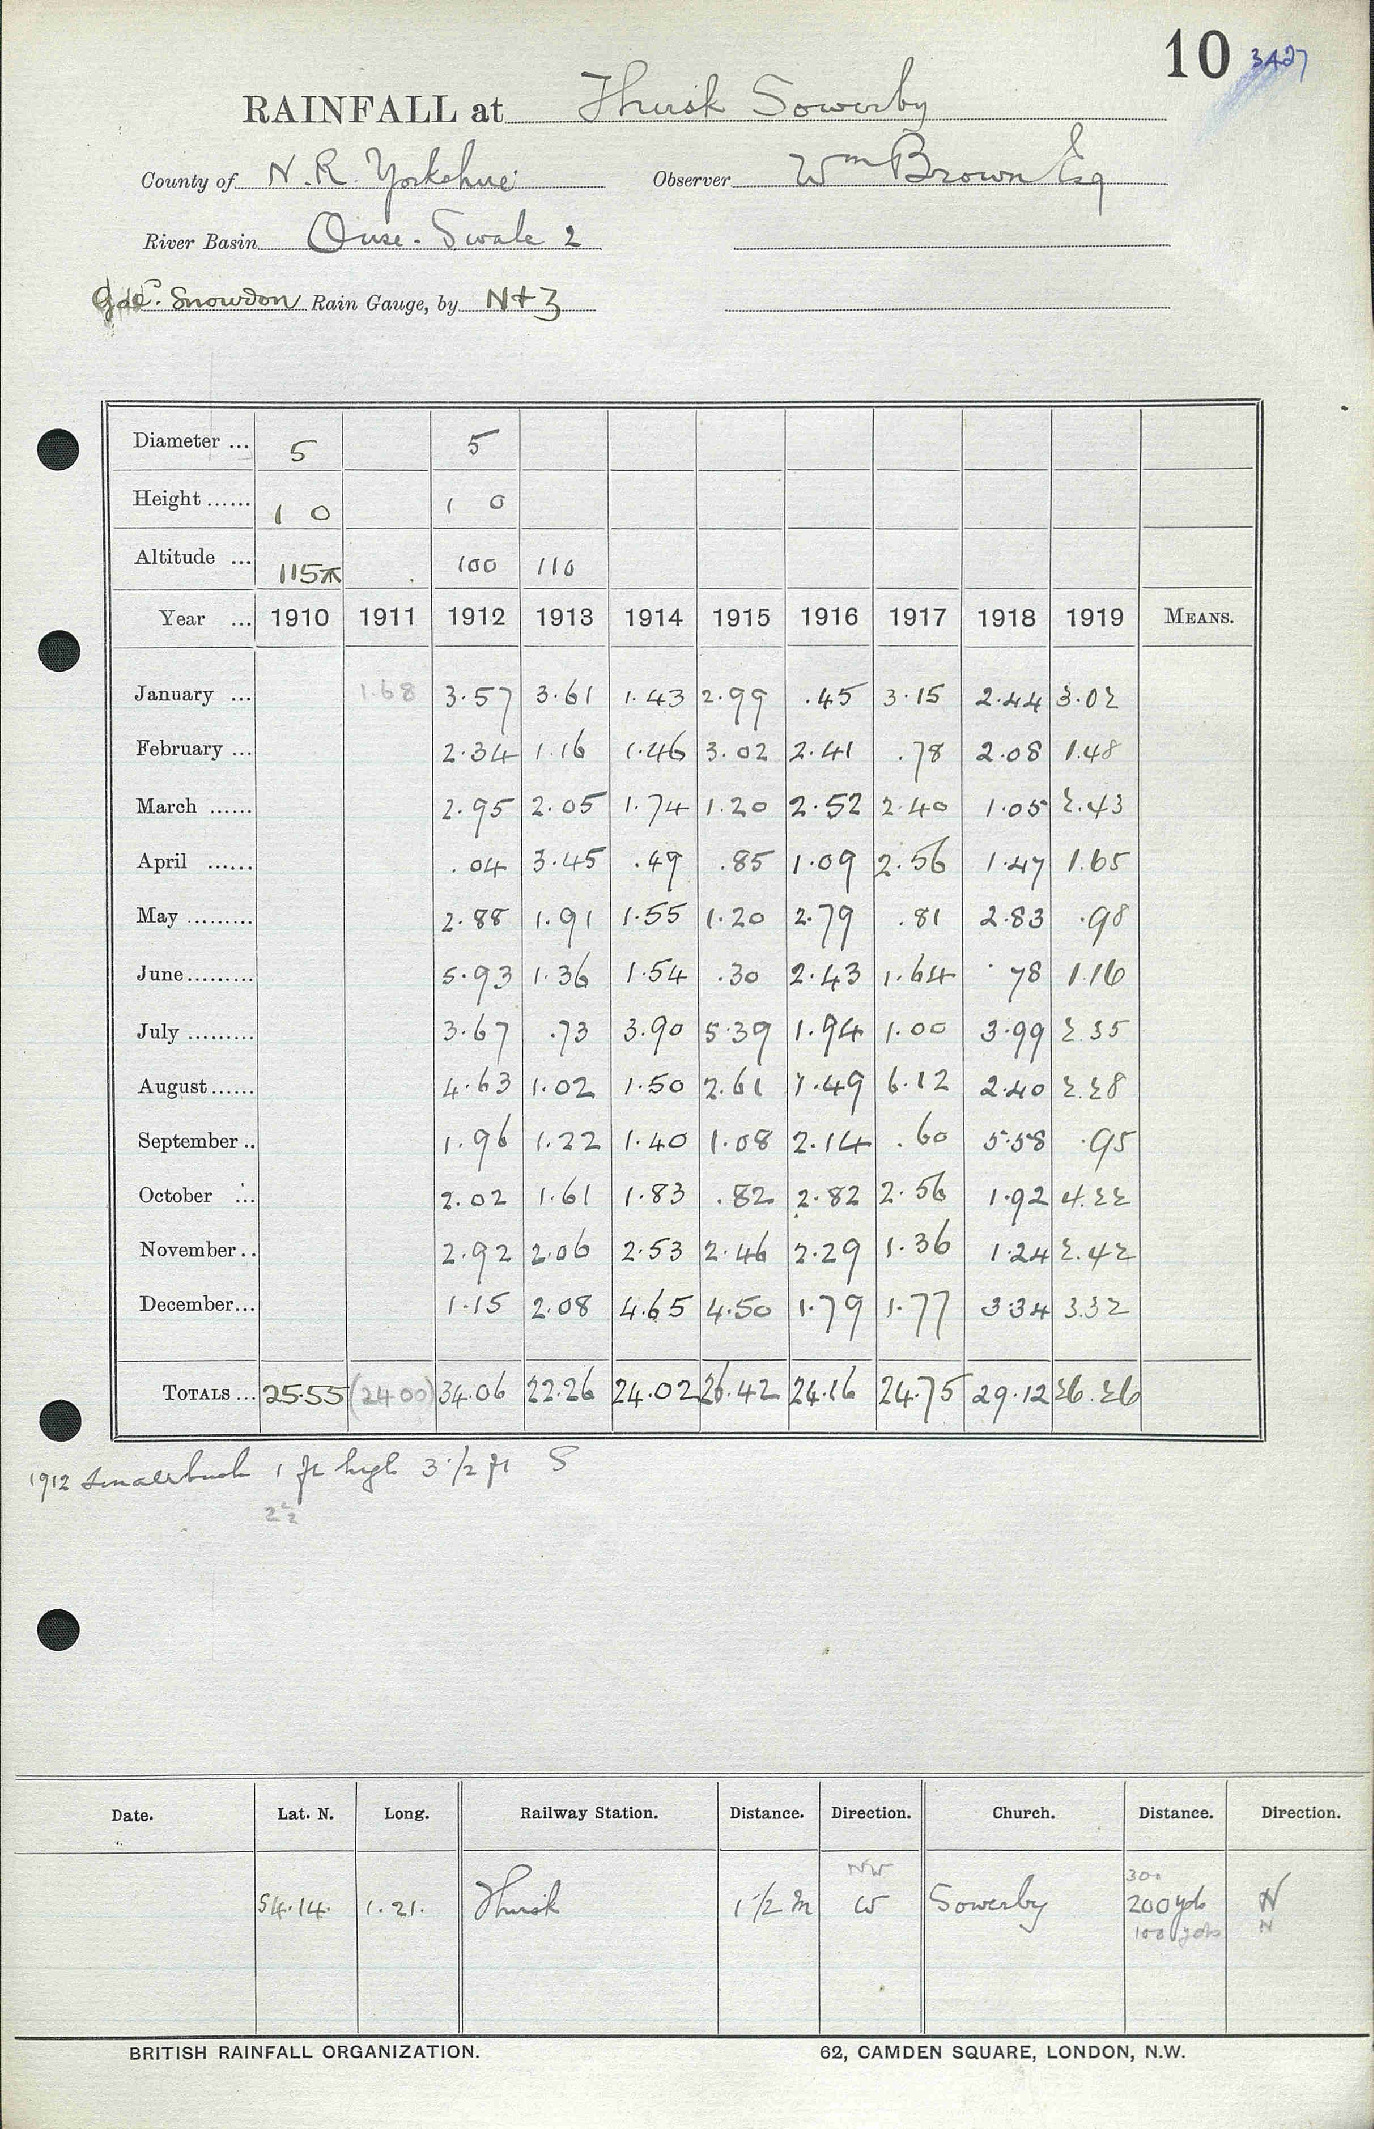 10 3427
RAINFALL at Thirsk Sowerby
County of N. R. Yorkshire Observer Wm Brown Esq
River Basin Ouse. Swale 2
Snowdon Rain Gauge, by N+Z
Diameter ... 5 5
Height ...... 1 0 1 0
Altitude ... 115 100 110
Year ... 1910 1911 1912 1913 1914 1915 1916 1917 1918 1919 MEANS.
January ... 1.68 3.57 3.61 1.43 2.99 .45 3.15 2.44 3.02
February ... 2.34 1.16 1.46 3.02 2.41 .78 2.08 1.48
March ...... 2.95 2.05 1.74 1.20 2.52 2.40 1.05 2.43
April ...... .04 3.45 .49 .85 1.09 2.56 1.47 1.65
May ......... 2.88 1.91 1.55 1.20 2.79 .81 2.83 .98
June ......... 5.93 1.36 1.54 .30 2.43 1.64 .78 1.16
July ......... 3.67 .73 3.90 5.39 1.94 1.00 3.99 2.35
August ...... 4.63 1.02 1.50 2.61 1.49 6.12 2.40 2.28
September .. 1.96 1.22 1.40 1.08 2.14 .60 5.58 .95
October ... 2.02 1.61 1.83 .82 2.82 2.56 1.92 4.22
November .. 2.92 2.06 2.53 2.46 2.29 1.36 1.24 2.42
December ... 1.15 2.08 4.65 4.50 1.79 1.77 3.34 3.32
TOTALS ... 25.55 (24.00) 34.06 22.26 24.02 26.42 24.16 24.75 29.12 26.26
1912 1 ft high 3 1/2 ft S
Date. Lat. N. Long. Railway Station. Distance. Direction. Church. Distance. Direction.
NW 300
54.14. 1.21. Thirsk 1 1/2 m W Sowerby 200 yds N
100 yds N
BRITISH RAINFALL ORGANIZATION. 62, CAMDEN SQUARE, LONDON, N.W.